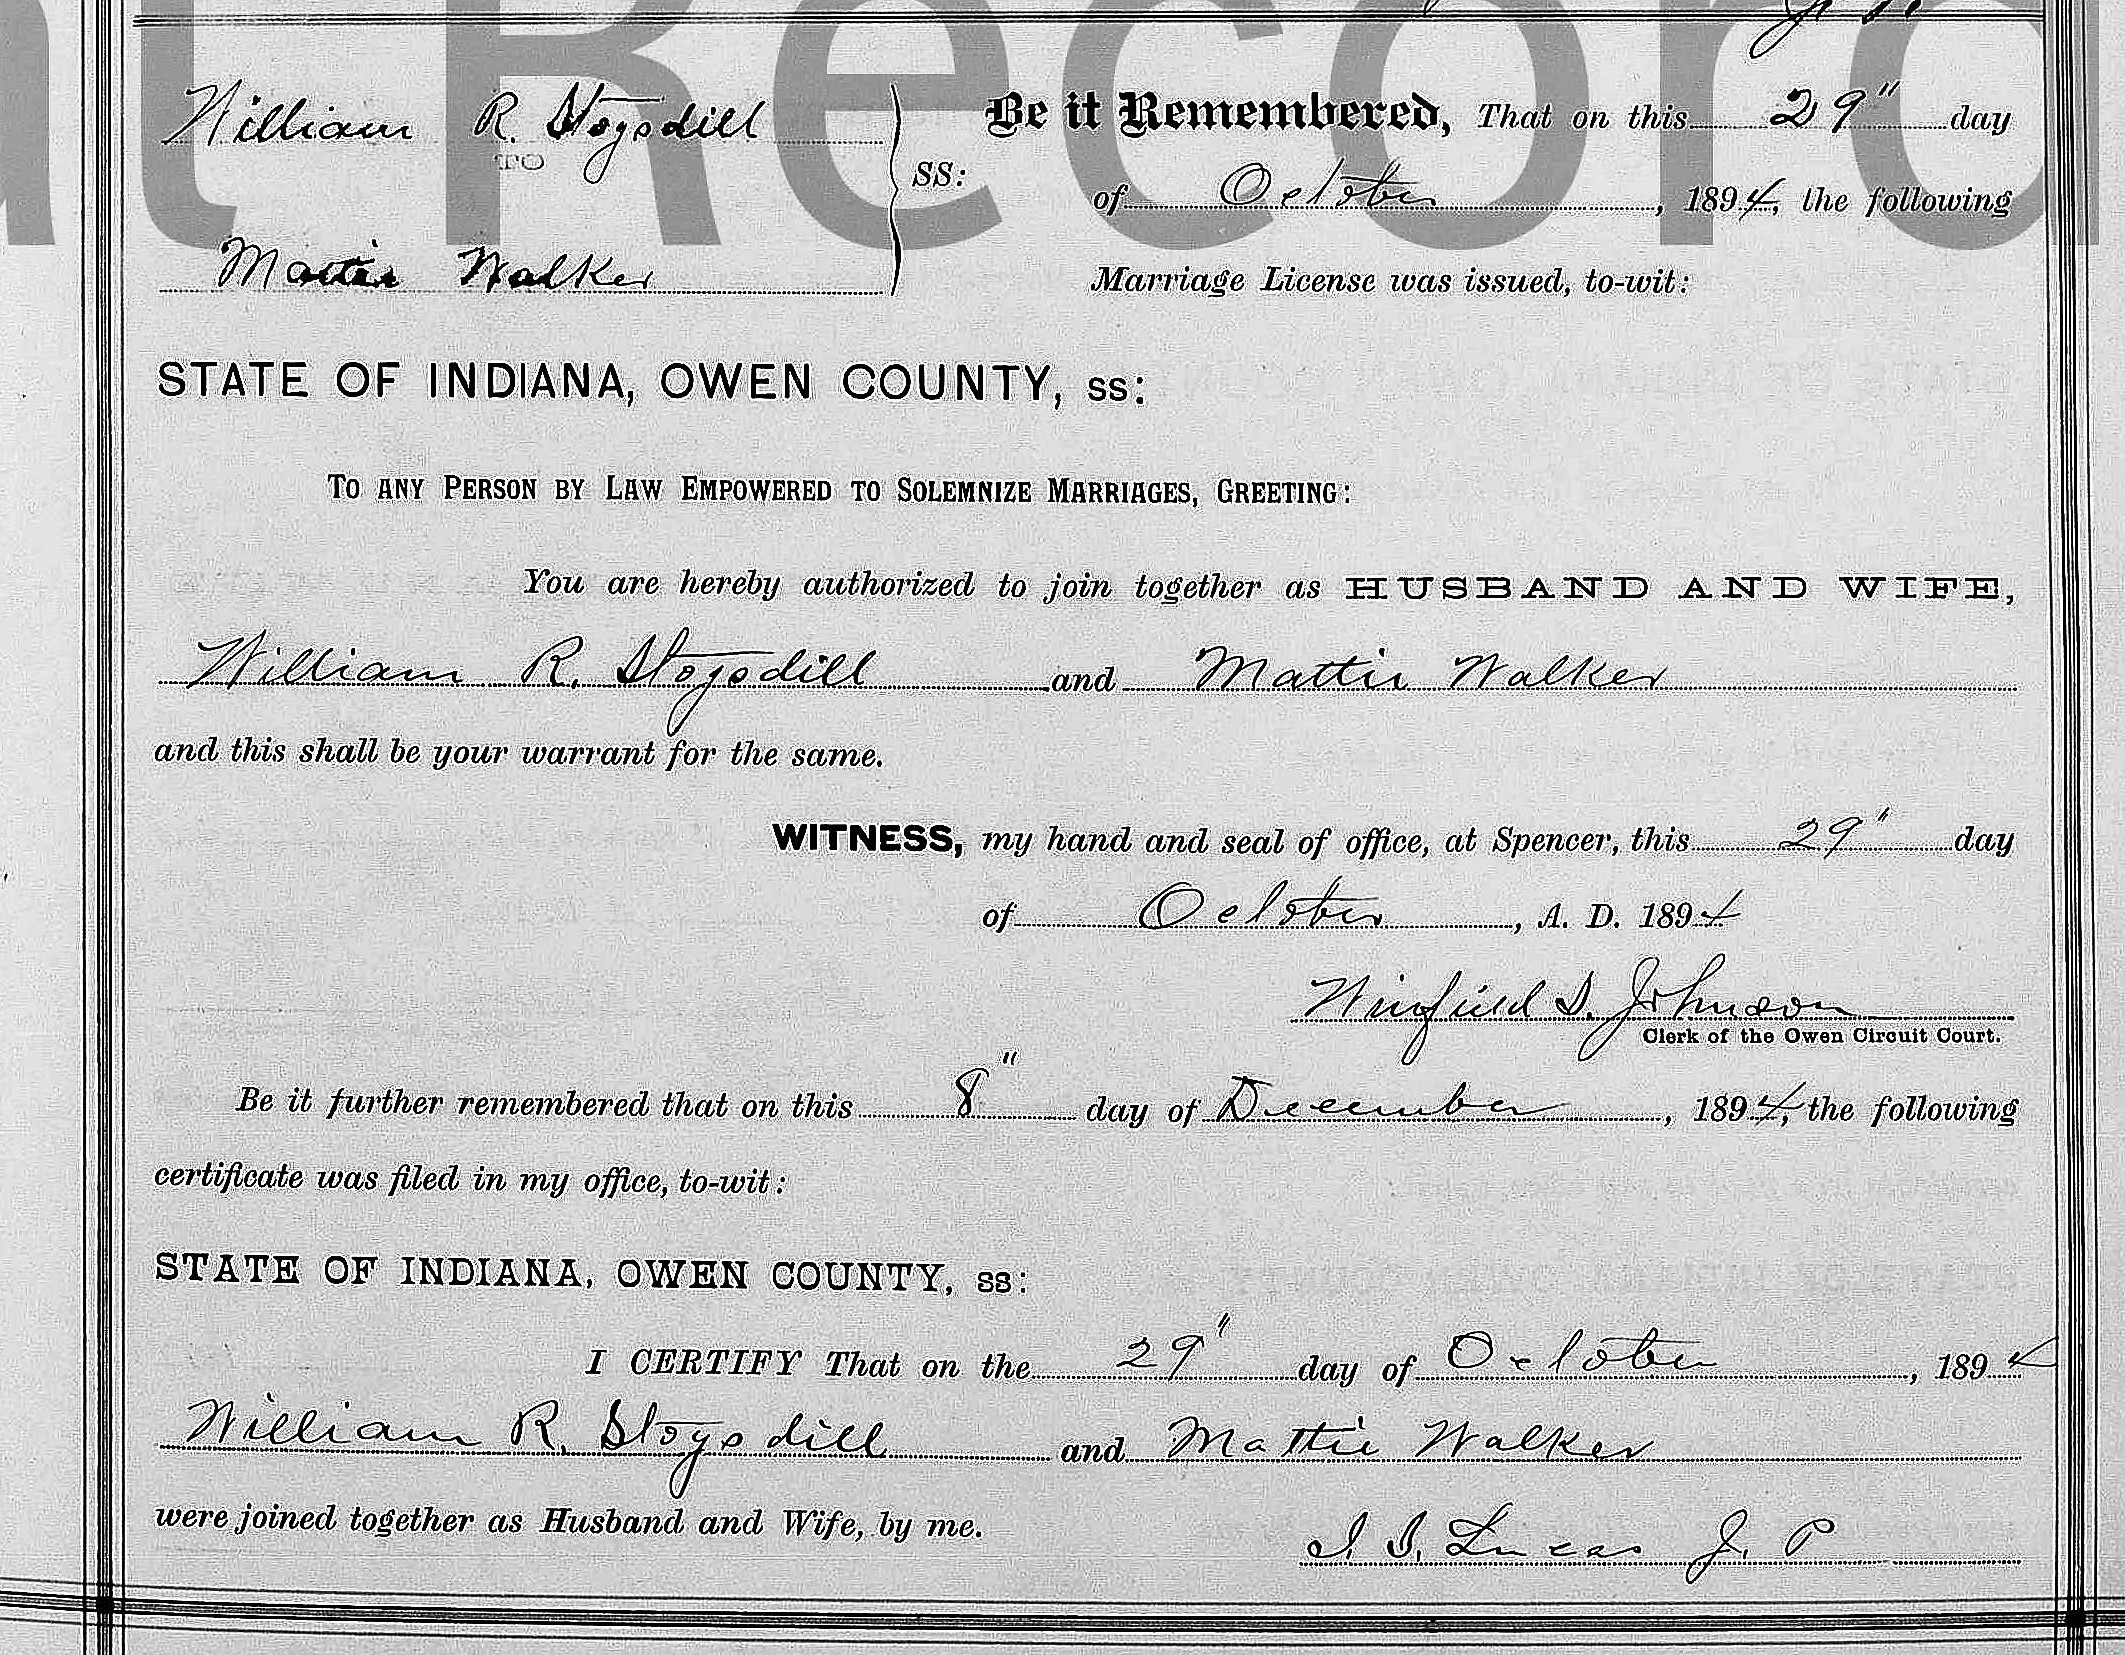 t Record
William R. Stogsdill
TO
Mattie Walker
SS:
Be it Remembered, That on this 29" day
of October, 1894, the following
Marriage License was issued, to-wit:
STATE OF INDIANA, OWEN COUNTY, ss:
TO ANY PERSON BY LAW EMPOWERED TO SOLEMNIZE MARRIAGES, GREETING:
You are hereby authorized to join together as HUSBAND AND WIFE,
William R. Stogsdill and Mattie Walker
and this shall be your warrant for the same.
WITNESS, my hand and seal of office, at Spencer, this 29" day
of October, A. D. 1894
Winfield S. Johnson
Clerk of the Owen Circuit Court.
Be it further remembered that on this 8" day of December, 1894, the following
certificate was filed in my office, to-wit:
STATE OF INDIANA, OWEN COUNTY, ss:
I CERTIFY That on the 29" day of October, 1894
William R. Stogsdill and Mattie Walker
were joined together as Husband and Wife, by me.
I. S. Lucas J. P